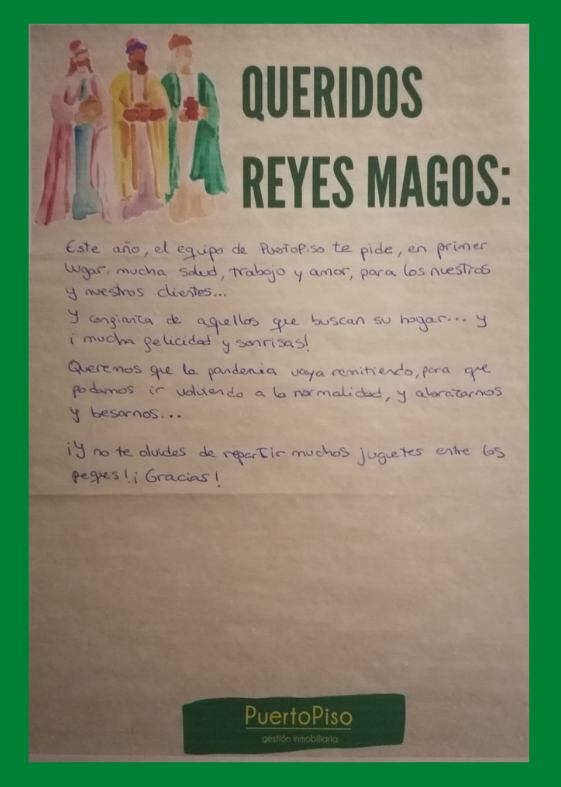 QUERIDOS
REYES MAGOS:
Este año, el equipo de PuertoPiso te pide, en primer
lugar, mucha salud, trabajo y amor, para los nuestros
y nuestros clientes...
Y confianza de aquellos que buscan su hogar... y
¡mucha felicidad y sonrisas!
Queremos que la pandemia vaya remitiendo, para que
podamos ir volviendo a la normalidad, y abrazarnos
y besarnos...
¡Y no te olvides de repartir muchos juguetes entre los
peques! ¡Gracias!
PuertoPiso
gestión inmobiliaria